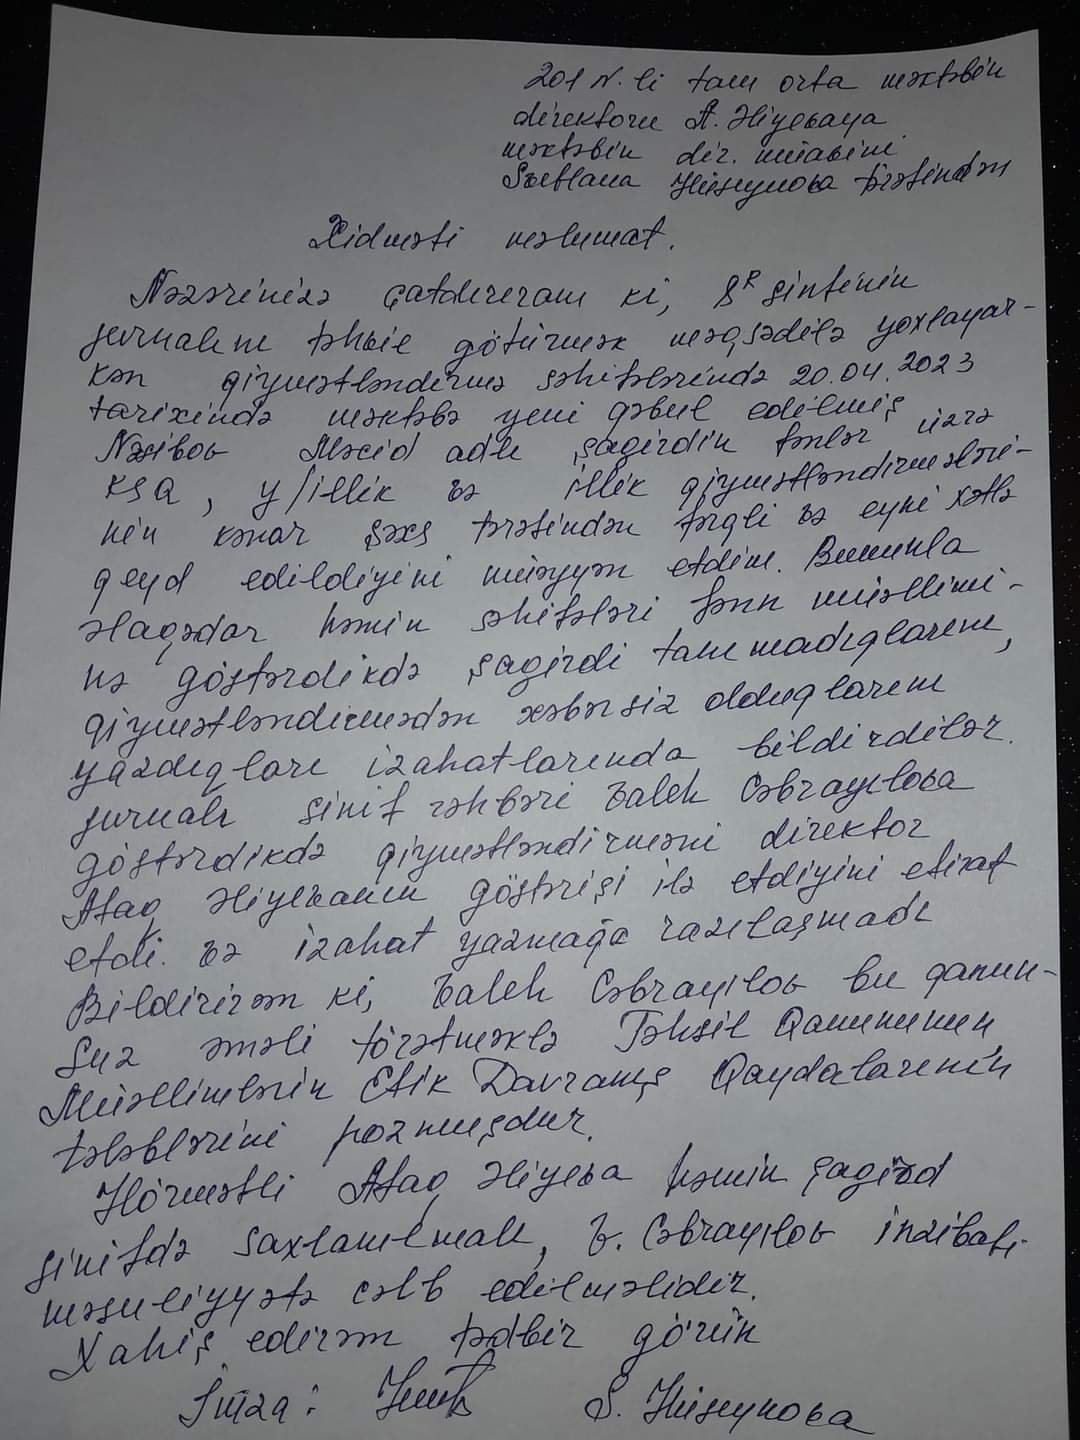 201 N-li tam orta məktəbin
direktoru A. Əliyevaya
məktəbin dir. müavini
Svetlana Hüseynova tərəfindən
Xidməti məlumat.
Nəzərinizə çatdırıram ki, 8ᴿ sinfinin
jurnalını təhvil götürmək məqsədilə yoxlayar-
kən qiymətləndirmə səhifələrində 20.04.2023
tarixində məktəbə yeni qəbul edilmiş
Nəsibov Məcid adlı şagirdin fənlər üzrə
KSQ, y/illik və illik qiymətləndirmələri-
nin kənar şəxs tərəfindən fərqli və eyni xətlə
qeyd edildiyini müəyyən etdim. Bununla
əlaqədar həmin səhifələri fənn müəllimi-
nə göstərdikdə şagirdi tanımadıqlarını,
qiymətləndirmədən xəbərsiz olduqlarını
yazdıqları izahatlarında bildirdilər.
jurnalı sinif rəhbəri Valeh Cəbrayılova
göstərdikdə qiymətləndirməni direktor
Afaq Əliyevanın göstərişi ilə etdiyini etiraf
etdi. və izahat yazmağa razılaşmadı
Bildirirəm ki, Valeh Cəbrayılov bu qanun-
suz əməli törətməklə Təhsil Qanununun,
Müəllimlərin Etik Davranış Qaydalarının
tələblərini pozmuşdur.
Hörmətli Afaq Əliyeva həmin şagird
sinifdə saxlanılmalı, V. Cəbrayılov inzibati
məsuliyyətə cəlb edilməlidir.
Xahiş edirəm tədbir görün
İmza: S. Hüseynova